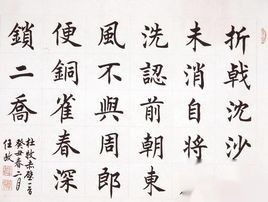 折戟沈沙
未消自將
洗認前朝東
風不與周郎
便銅雀春深
鎖二喬
杜牧赤壁一首
癸丑春二月
任政